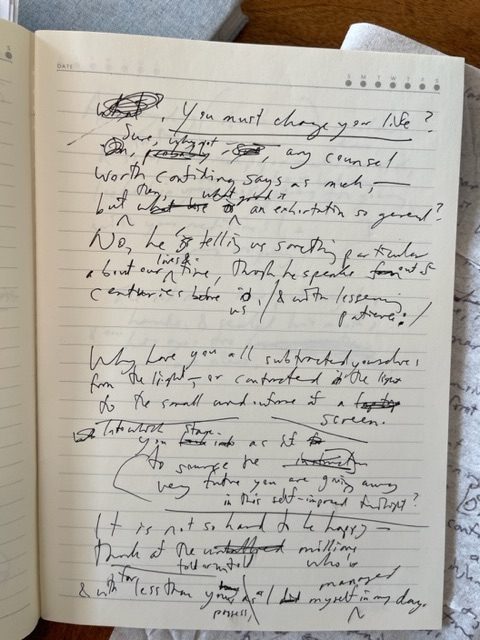 DATE
S M T W T F S
What, You must change your life?
Sure, why not
any counsel
worth confiding says as much,—
then, what good is
but an exhortation so general?
No, he is telling us something particular
lives &
about our time, though he speaks from out of
centuries before us, / & with lessening
patience: /
Why have you all subtracted yourselves
from the light, — or contracted the light
to the small window of a
screen.
Into which stage
you as if
to source the
very future you are giving away
in this self-imposed twilight?
It is not so hard to be happy —
think of the millions
who
managed
for
& with less than you as I myself in my day.
possess,